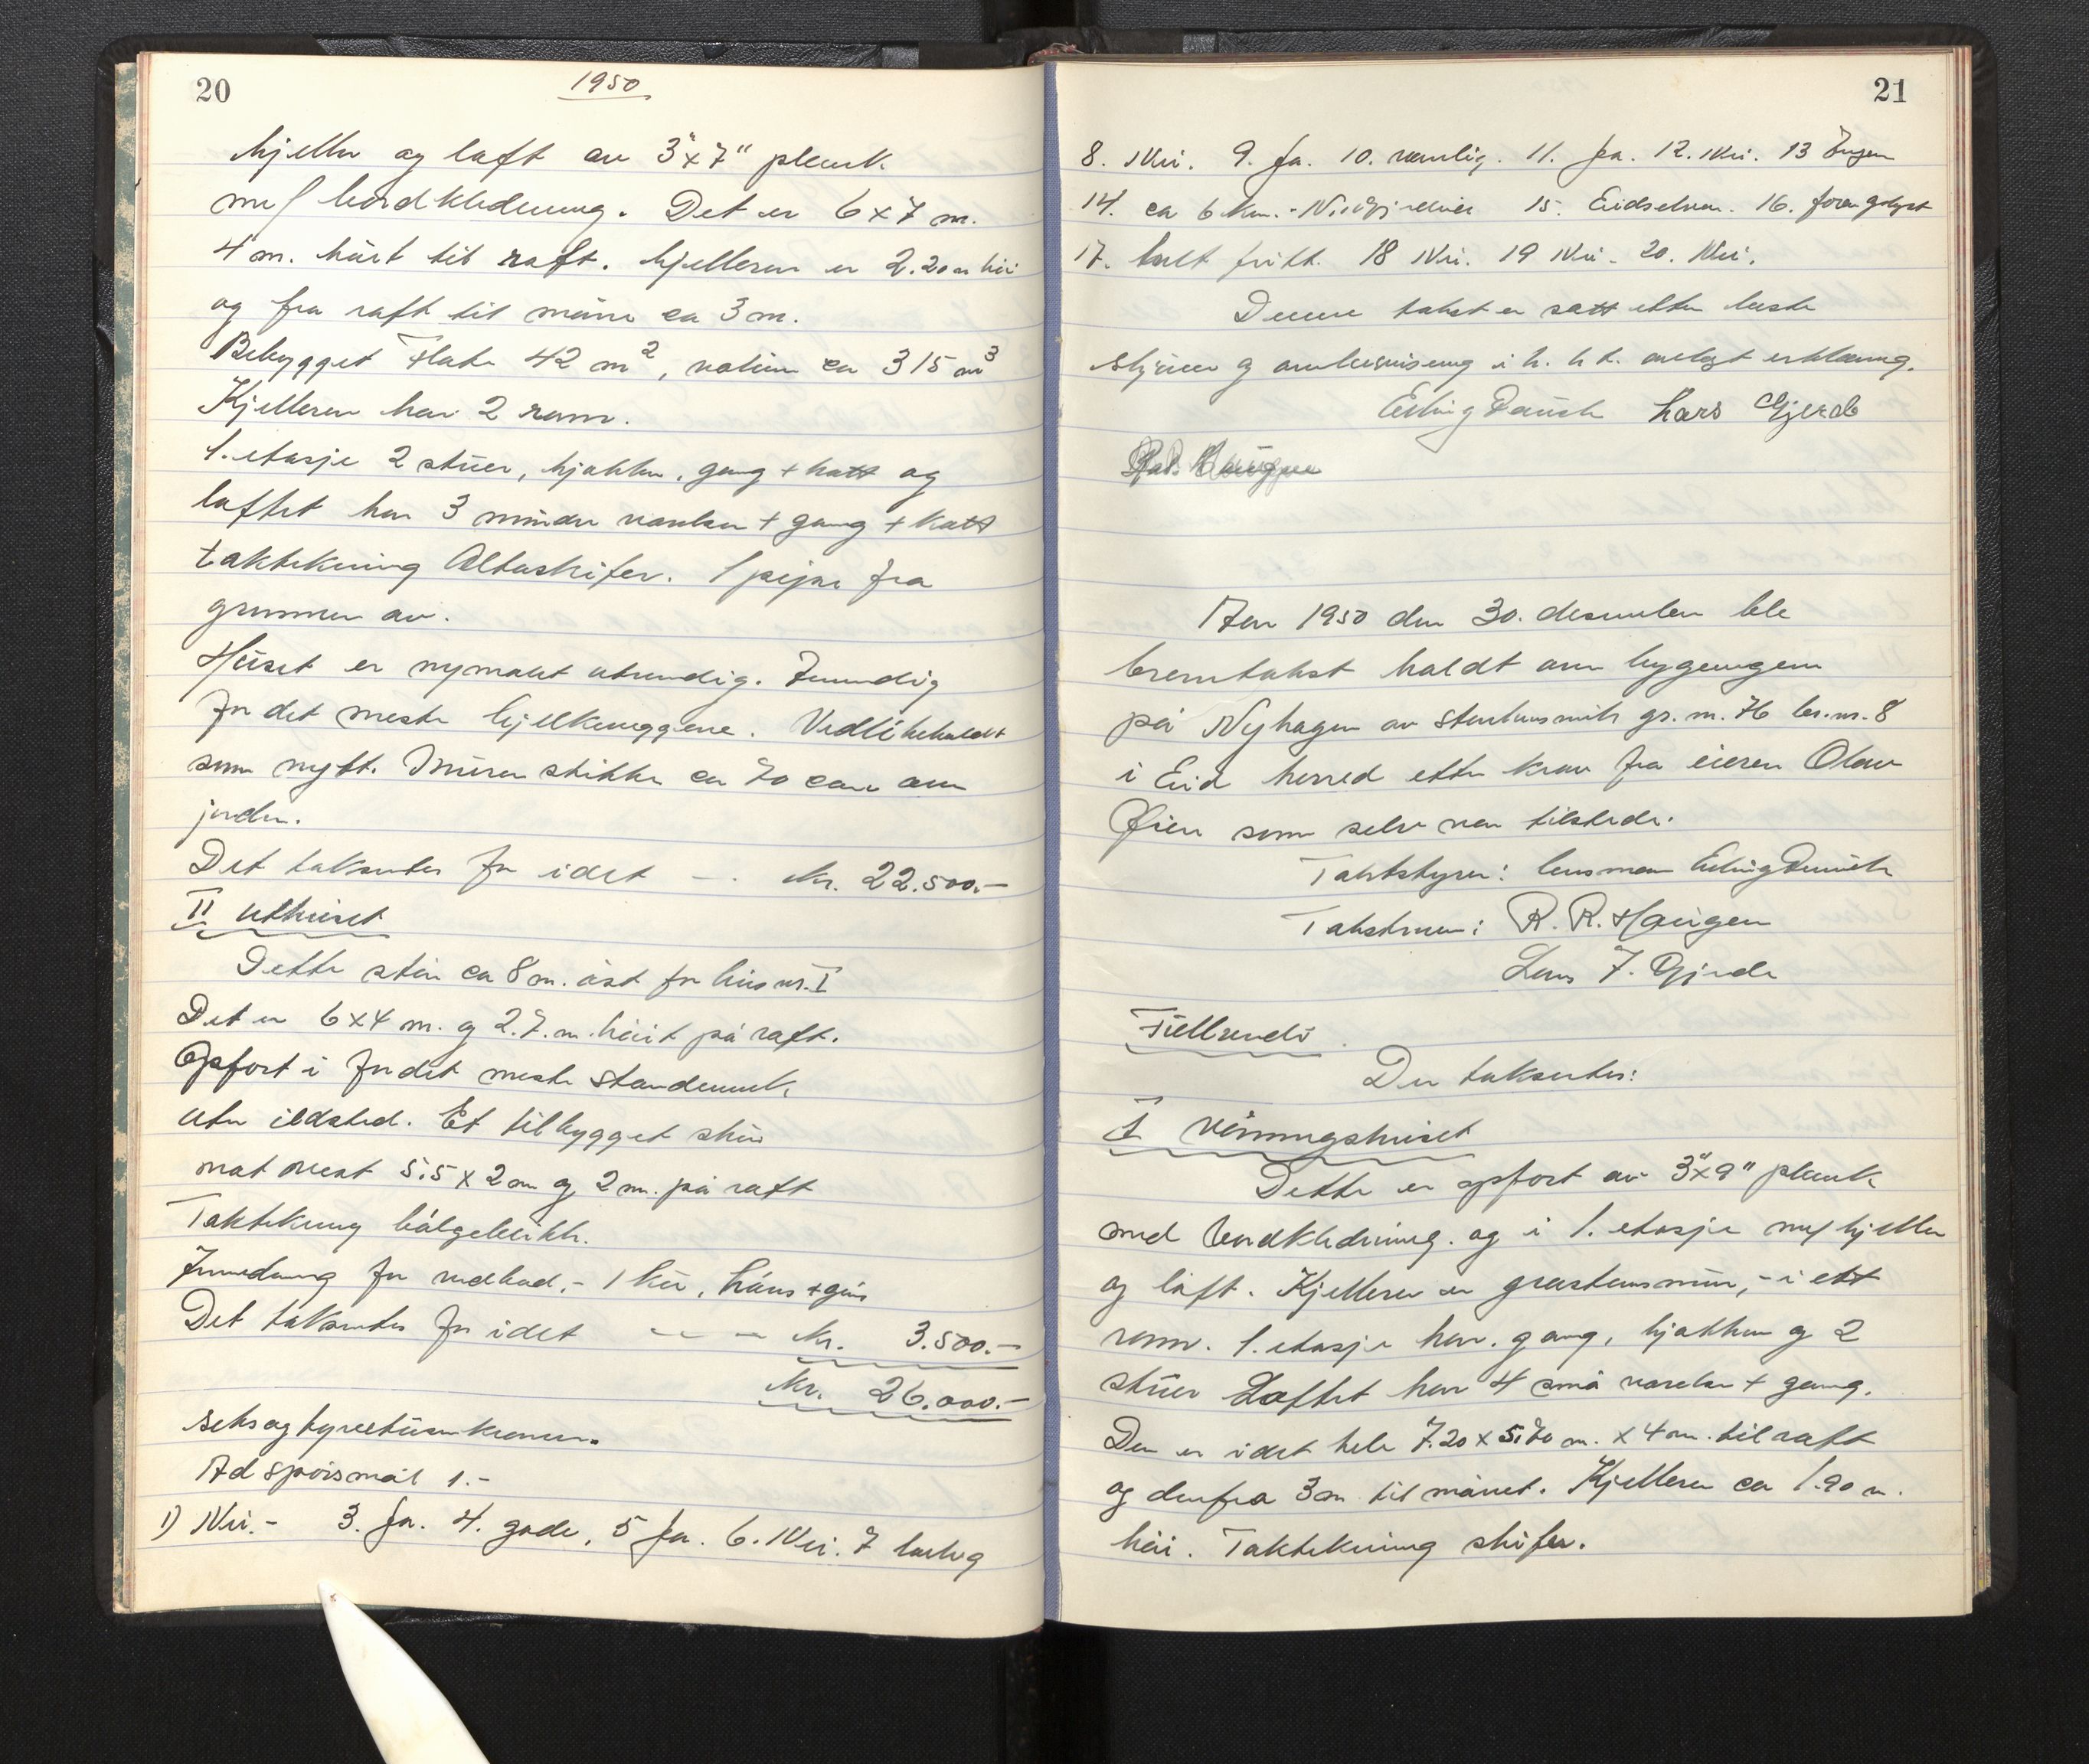 20
1950
kjeller og loft av 3"x7" plank
m/ bordkledning. Det er 6x7 m.
4 m. høit til raft. kjelleren er 2.20 m høi
og fra raft til møne ca 3 m.
Bebygget flate 42 m², volum ca 315 m³
Kjelleren har 2 rom.
1. etasje 2 stuer, kjøkken, gang + kott og
loftet har 3 mindre værelser + gang + kott
taktekning Altaskifer. 1 pipe fra
grunnen av.
Huset er nymalt utvendig. Innvendig
for det meste kjelkeveggene. Vedlikeholdt
som nytt. Muren stikker ca 70 cm over
jorden.
Det takseres for idet - - kr. 22.500.-
II uthuset
Dette står ca 8 m. øst for hus nr. I
Det er 6x4 m. og 2.7. m. høit på raft.
Opført i for det meste standerverk
uten ildsted. Et tilbygget skur
mot vest 5.5 x 2 m og 2 m. på raft
Taktekning bølgeblikk.
Innredning for vedbod, - 1 ku, høns + gris
Det takseres for idet - - - kr. 3.500.-
kr. 26.000.-
seksogtyvetusenkroner.
Ad spørsmål 1.-
1) Nei.- 3. Ja. 4. gode, 5 Ja. 6. Nei. 7 lovlig
21
8. Nei. 9. Ja. 10. vanlig. 11. Ja. 12. Nei. 13 Ingen
14. ca 6 km. - 15. Eidselven. 16.
17. helt fritt. 18 Nei. 19 Nei - 20. Nei.
Denne takst er satt etter beste
skjønn og overbevisning i h. h. t. avlagt erklæring.
Erling Lars Gjerde
Haugen
Aar 1950 den 30. desember ble
branntakst holdt over bygningen
på Nyhagen av gr. nr. 76 br. nr. 8
i Eid herred etter krav fra eieren Olav
Øien som selv var tilstede.
Takststyrer: lensmann Erling
Takstmenn: R. R. Haugen
Lars J. Gjerde
Fullende
Der takseres:
I våningshuset
Dette er opført av 3"x9" plank
med bordkledning. og i 1. etasje m/ kjeller
og loft. Kjelleren er gråstensmur, - i ett
rom. 1. etasje har. gang, kjøkken og 2
stuer Loftet har 4 små værelser + gang.
Den er idet hele 7.20 x 5.70 m. x 4 m. til raft
og derfra 3 m til mønet. Kjelleren ca 1.90 m.
høi. Taktekning skifer.